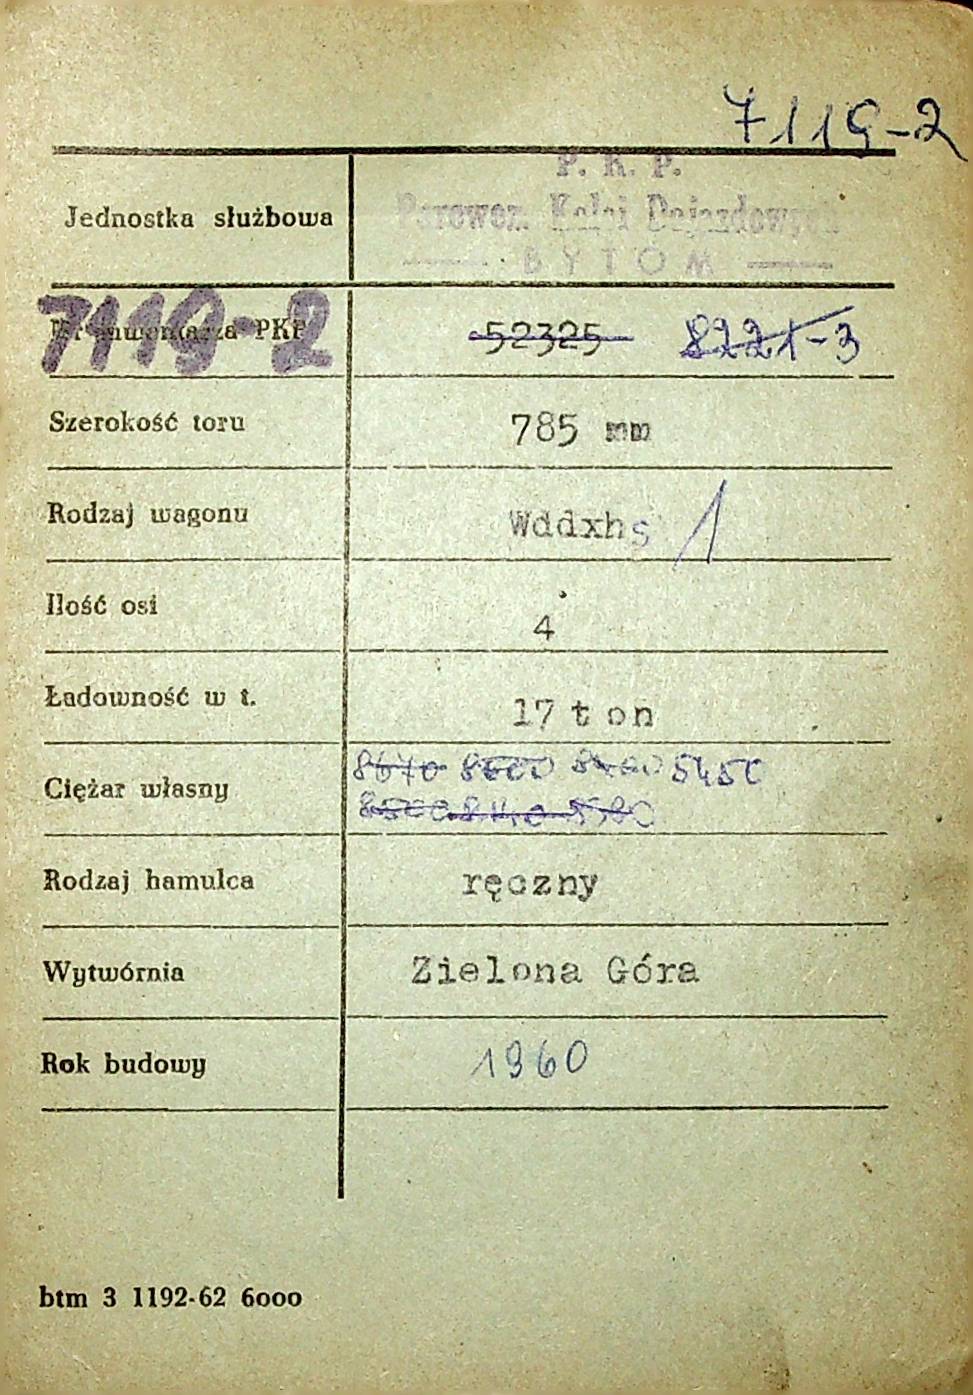 7119-2
P. K. P.
Jednostka służbowa Parowoz. Kolei Dojazdowych
BYTOM
7119-2
Nr inwentarza PKP 52325 8221-3
Szerokość toru 785 mm
Rodzaj wagonu Wddxhs 1
Ilość osi 4
Ładowność w t. 17 ton
8670 8600 5450
Ciężar własny
Rodzaj hamulca ręczny
Wytwórnia Zielona Góra
Rok budowy 1960
btm 3 1192-62 6000